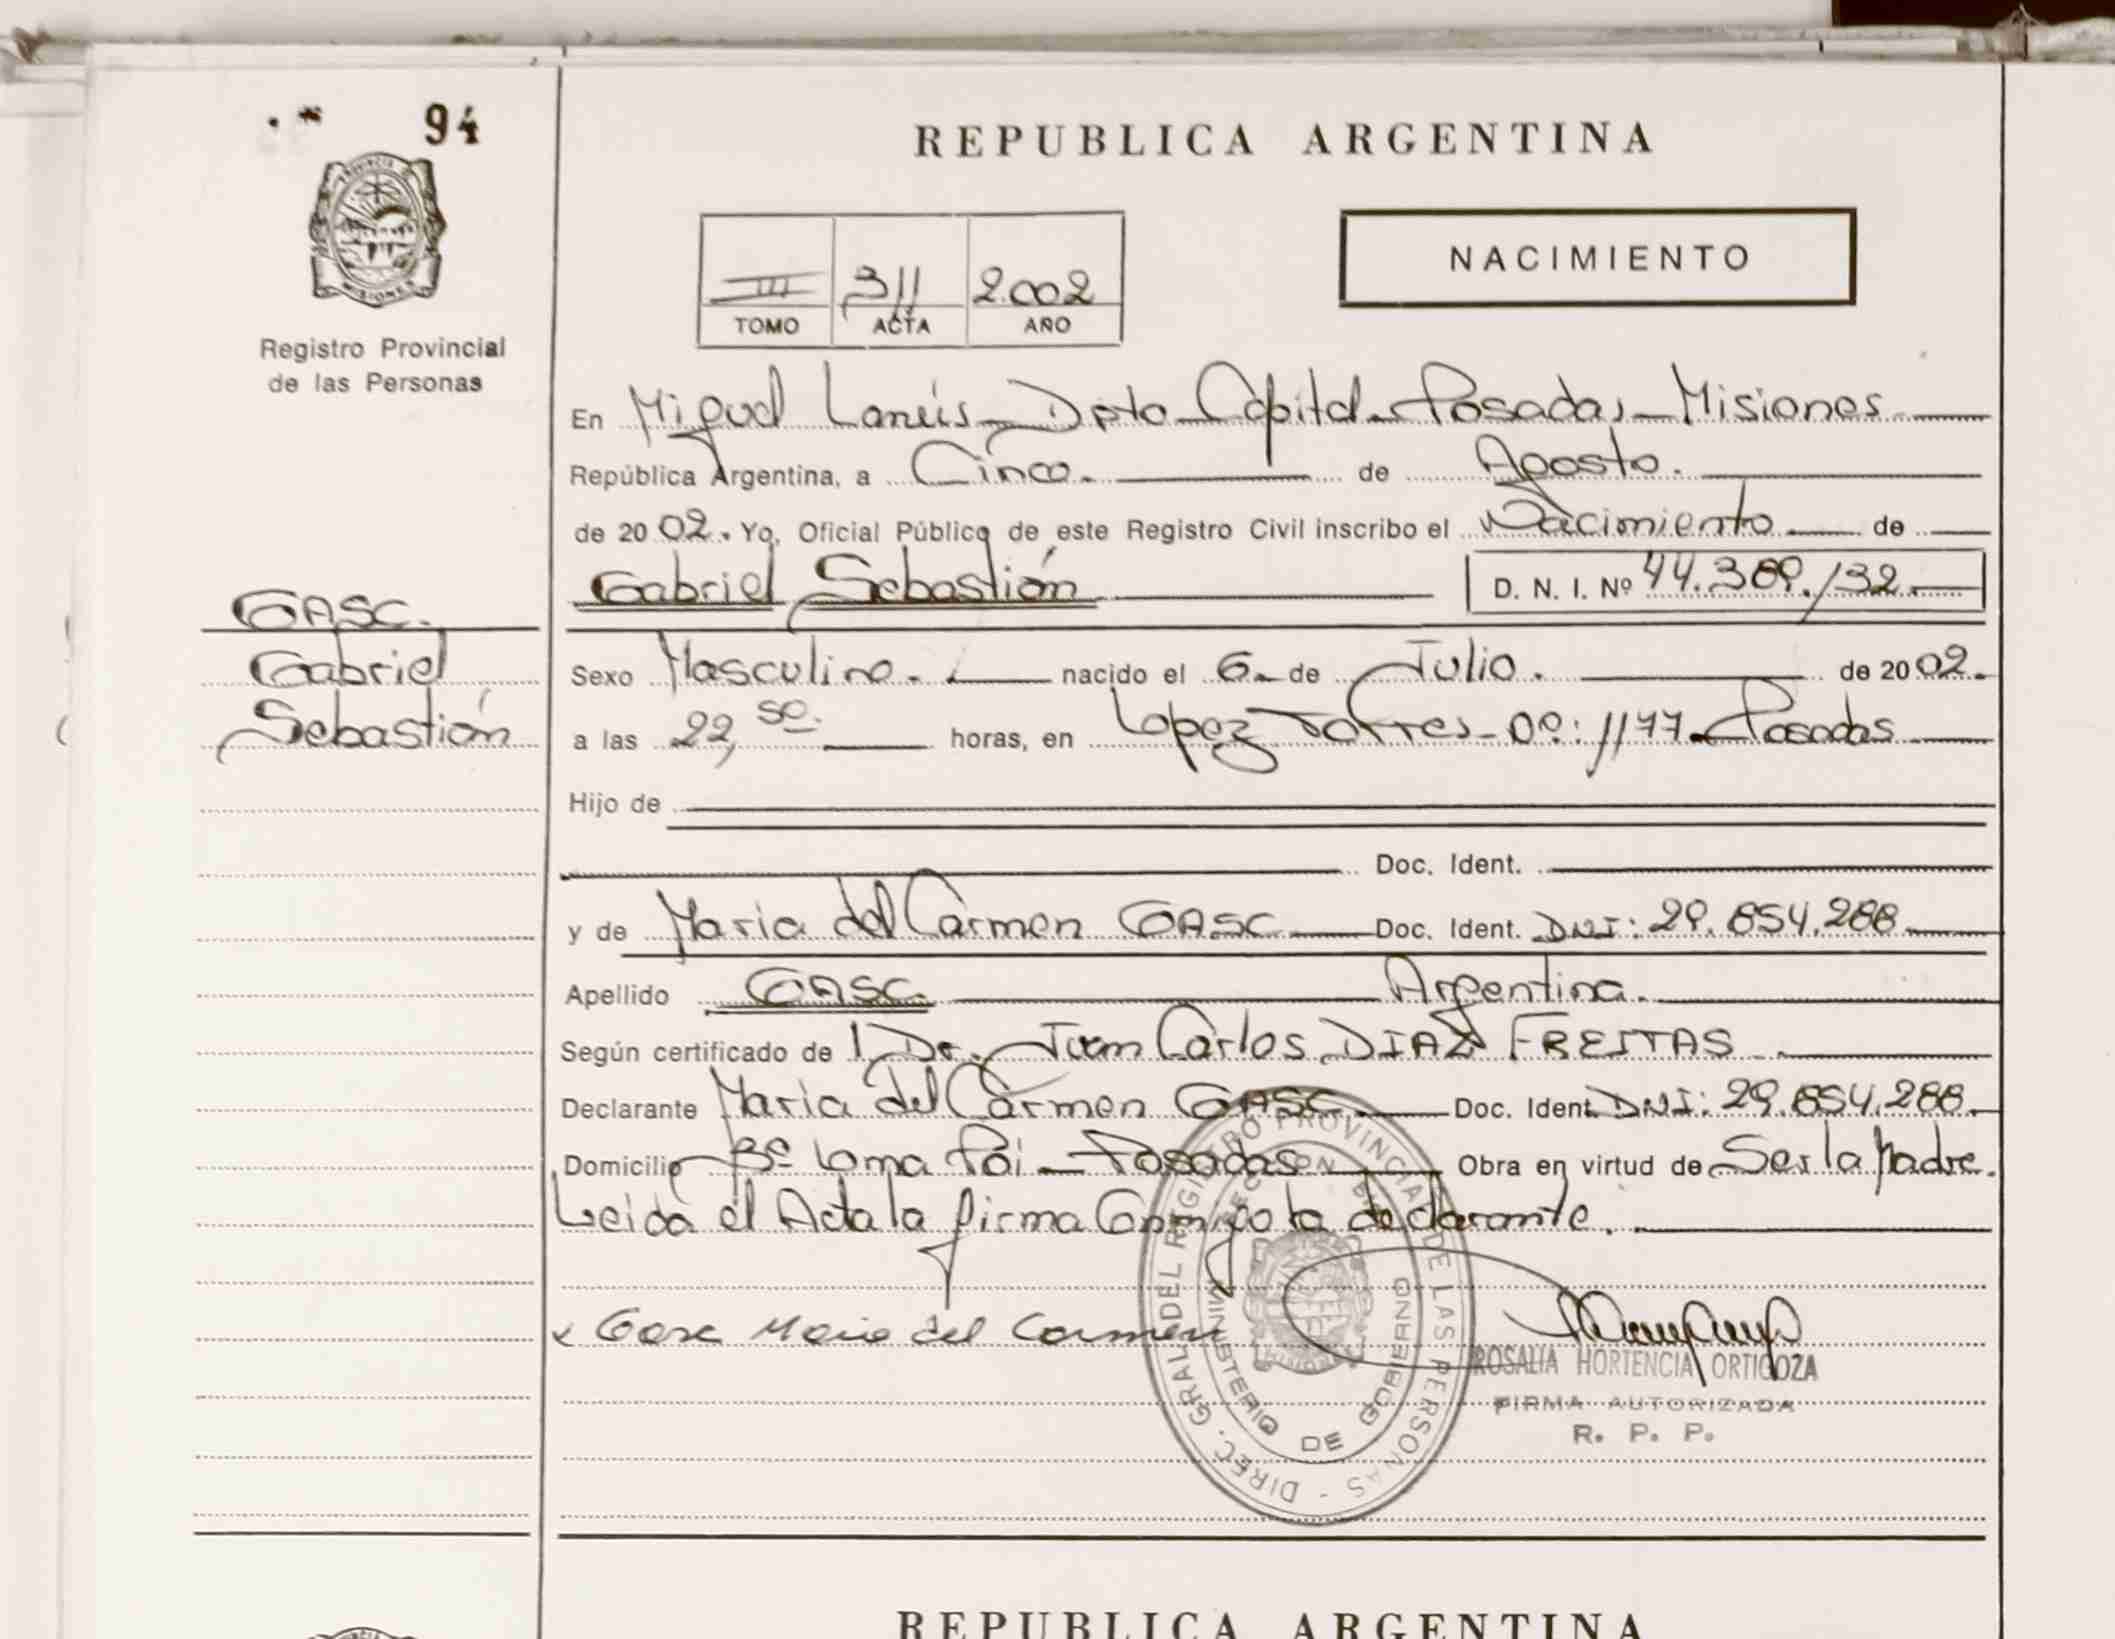 94
REPUBLICA ARGENTINA
PROVINCIA
MISIONES
Registro Provincial
de las Personas
NACIMIENTO
III 311 2.002
TOMO ACTA AÑO
En Miguel Lanús - Dpto Capital - Posadas - Misiones
República Argentina, a Cinco. de Agosto.
de 20 02. Yo, Oficial Público de este Registro Civil inscribo el Nacimiento de
Gabriel Sebastián D. N. I. Nº 44.389.132.
GASC.
Gabriel
Sebastián
Sexo Masculino. nacido el 6 de Julio. de 20 02.
a las 22, horas, en Lopez Torres - nº: 1177 - Posadas
Hijo de
Doc. Ident.
y de Maria del Carmen GASC Doc. Ident. DNI: 29.854.288
Apellido GASC. Argentina.
Según certificado de Dr. Juan Carlos DIAZ FREITAS
Declarante Maria del Carmen GASC. Doc. Ident. DNI: 29.854.288
Domicilio Bº Loma Poi - Posadas Obra en virtud de Ser la Madre.
Leida el Acta la firma Conmigo la declarante.
x Gasc Maria del Carmen
ROSALIA HORTENCIA ORTIGOZA
FIRMA AUTORIZADA
R. P. P.
DIREC. GRAL. DEL REGISTRO PROVINCIAL DE LAS PERSONAS -
MINISTERIO DE GOBIERNO
REPUBLICA ARGENTINA